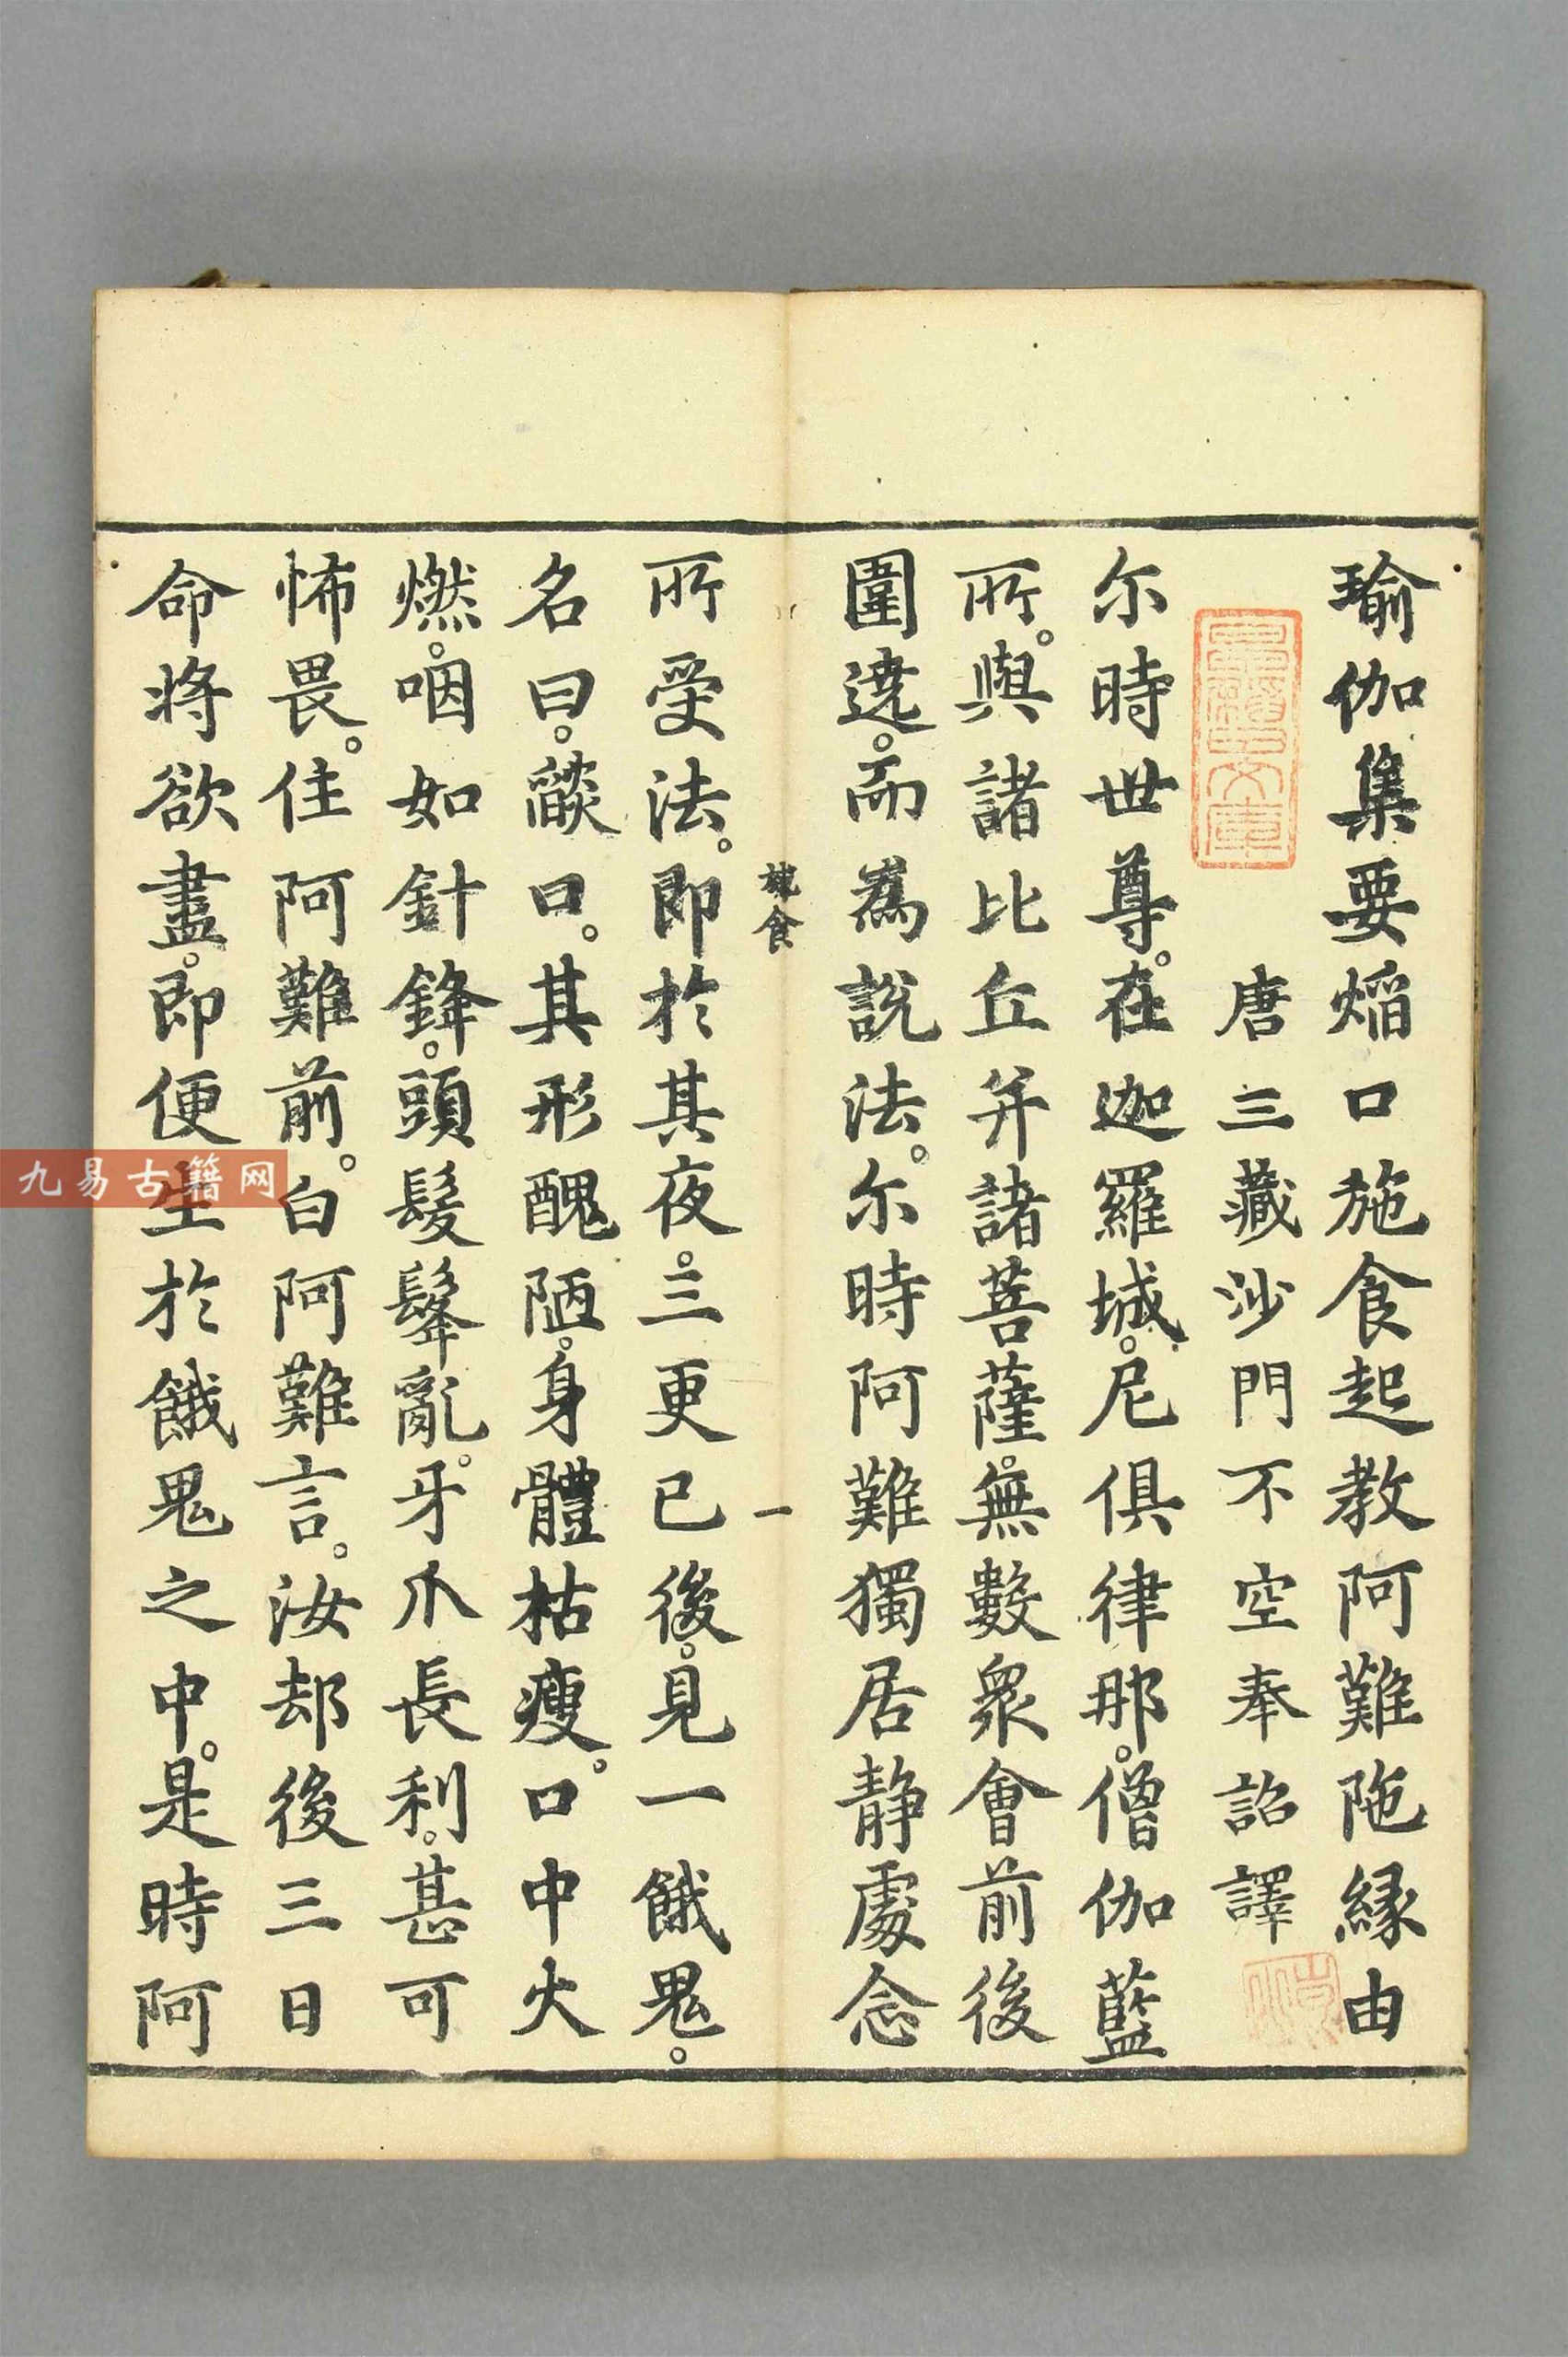 瑜伽集要焰口施食起教阿難陁緣由
唐三藏沙門不空奉詔譯
尒時世尊。在迦羅城。尼俱律那。僧伽藍
所。與諸比丘并諸菩薩。無數眾會前後
圍遶。而為說法。尒時阿難獨居静處念
施食
一
所受法。即於其夜。三更已後。見一餓鬼。
名曰。燄口。其形醜陋。身體枯瘦。口中火
燃。咽如針鋒。頭髮髼亂。牙爪長利。甚可
怖畏。住阿難前。白阿難言。汝却後三日
命將欲盡。即便生於餓鬼之中。是時阿
九易古籍网